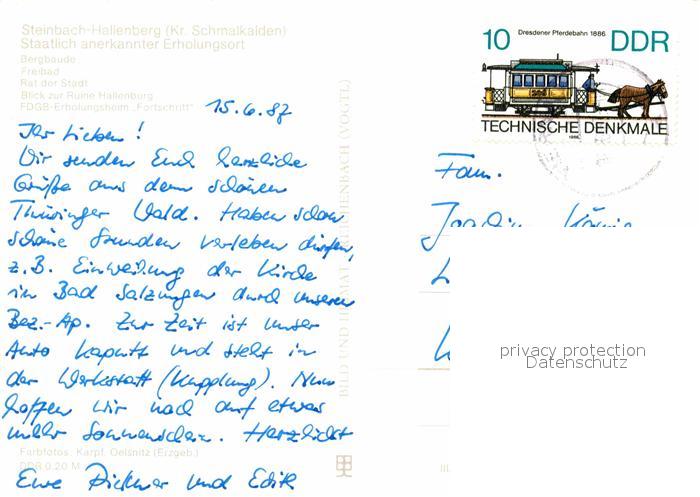 Steinbach-Hallenberg (Kr. Schmalkalden)
Staatlich anerkannter Erholungsort
Bergbaude
Freibad
Rat der Stadt
Blick zur Ruine Hallenburg
FDGB-Erholungsheim „Fortschritt"
15.6.87
Ihr Lieben!
Wir senden Euch herzliche
Grüße aus dem schönen
Thüringer Wald. Haben schon
schöne Stunden verleben dürfen,
z.B. Einweihung der Kirche
in Bad Salzungen durch unseren
Bez.-Ap. Zur Zeit ist unser
Auto kaputt und steht in
der Werkstatt (Kupplung). Nun
hoffen wir noch auf etwas
mehr Sonnenschein. Herzlichst
Eure Dietmar und Edith
Farbfotos: Karpf, Oelsnitz (Erzgeb.)
DDR 0,20 M
BILD UND HEIMAT REICHENBACH (VOGTL)
Dresdener Pferdebahn 1886
10 DDR
TECHNISCHE DENKMALE
1986
Fam.
Joachim König
privacy protection
Datenschutz